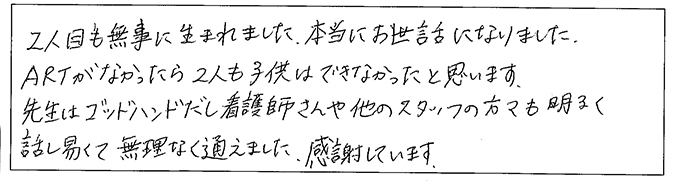 2人目も無事に生まれました、本当にお世話になりました.
ARTがなかったら2人も子供はできなかったと思います.
先生はゴッドハンドだし看護師さんや他のスタッフの方々も明るく
話し易くて無理なく通えました、感謝しています.